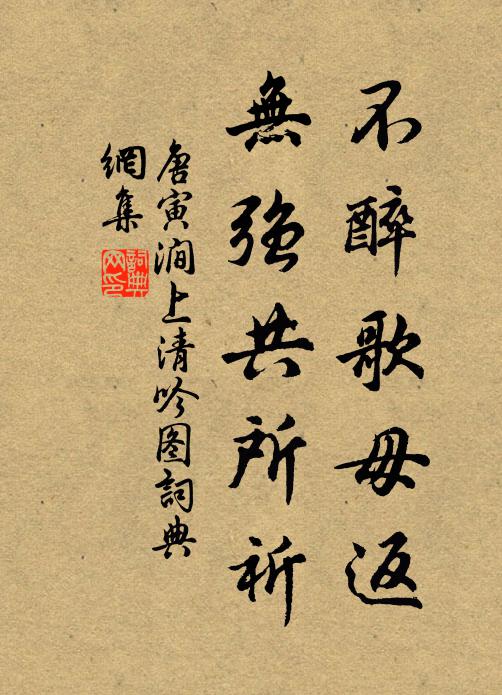 不醉歌毋返
無強共所祈
唐寅澗上清吟图詞典
網集
詞典
网印